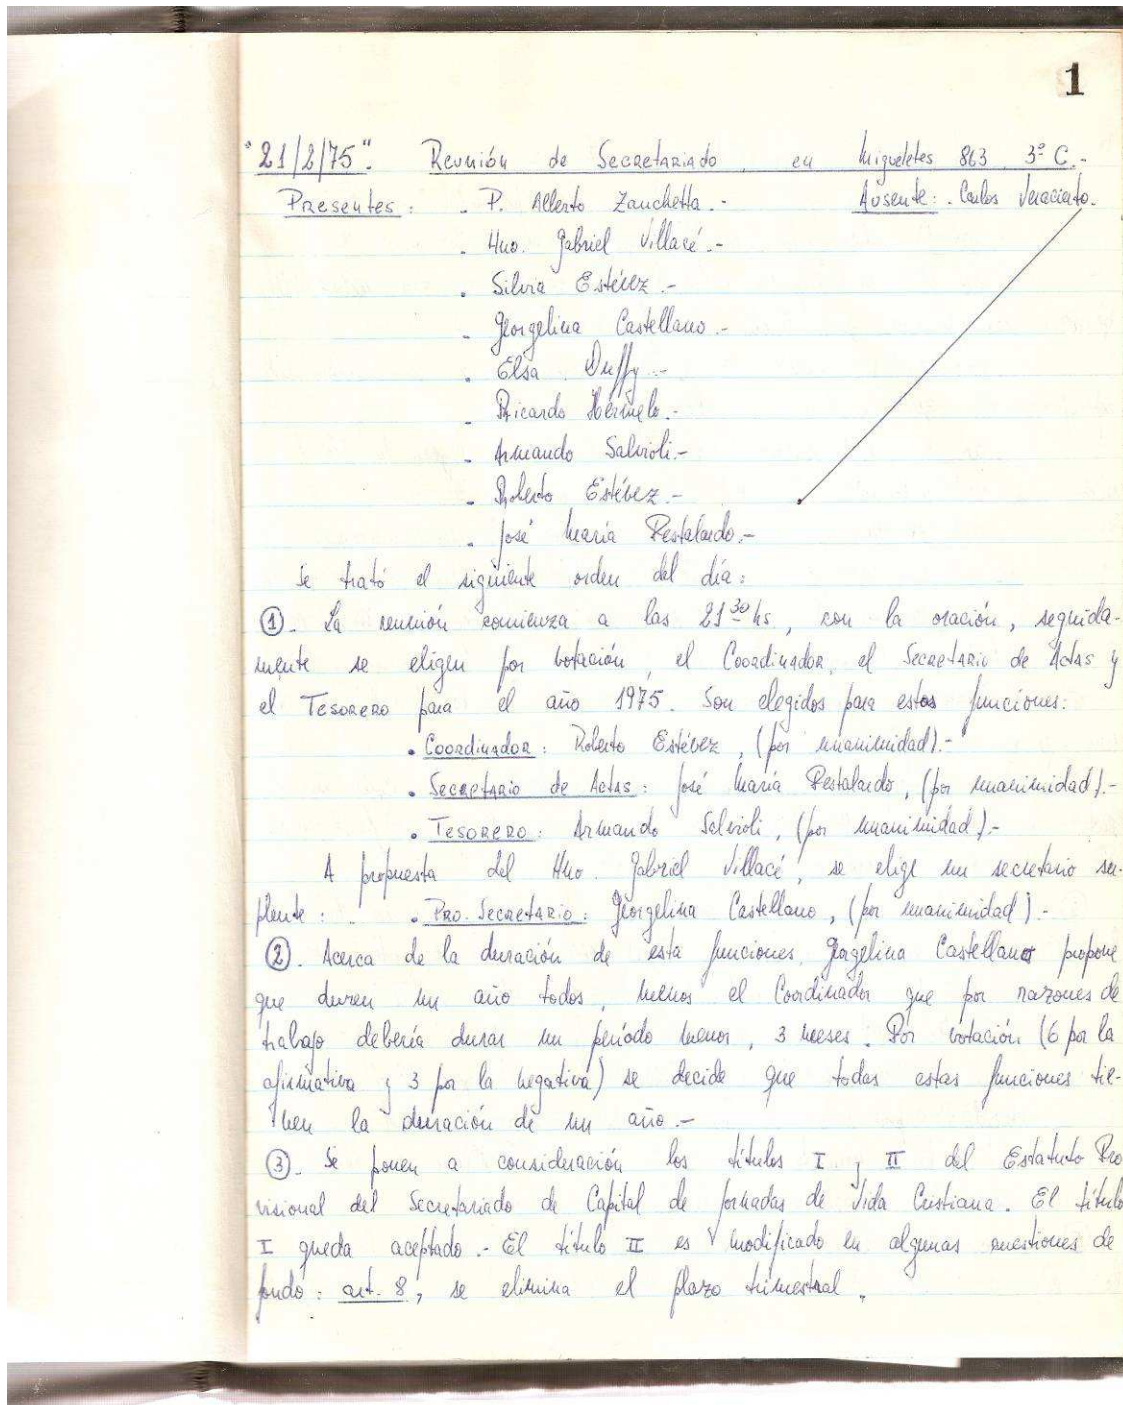 1
"21/2/75". Reunión de Secretariado, en Migueletes 863 3º C.-
Presentes: . P. Alberto Zanchetta.- Ausente: . Carlos Veraciarto.
. Hno. Gabriel Villacé.-
. Silvia Estévez.-
. Georgelina Castellano.-
. Elsa Duffy.-
. Ricardo Hermelo.-
. Armando Salvioli.-
. Roberto Estévez.-
. José María Pestalardo.-
Se trató el siguiente orden del día:
①. La reunión comienza a las 21 30 hs, con la oración, seguida-
mente se eligen por votación, el Coordinador, el Secretario de Actas y
el Tesorero para el año 1975. Son elegidos para estas funciones:
. Coordinador: Roberto Estévez, (por unanimidad).-
. Secretario de Actas: José María Pestalardo, (por unanimidad).-
. Tesorero: Armando Salvioli, (por unanimidad).-
A propuesta del Hno. Gabriel Villacé, se elige un secretario su-
plente: . Pro. Secretario: Georgelina Castellano, (por unanimidad).-
②. Acerca de la duración de esta funciones, Gogelina Castellano propone
que duren un año todos, menos el Coordinador que por razones de
trabajo debería durar un período menor, 3 meses. Por votación (6 por la
afirmativa y 3 por la negativa) se decide que todas estas funciones tie-
nen la duración de un año.-
③. Se ponen a consideración los títulos I y II del Estatuto Pro
visional del Secretariado de Capital de Jornadas de Vida Cristiana. El título
I queda aceptado.- El título II es modificado en algunas cuestiones de
fondo: art. 8, se elimina el plazo trimestral.